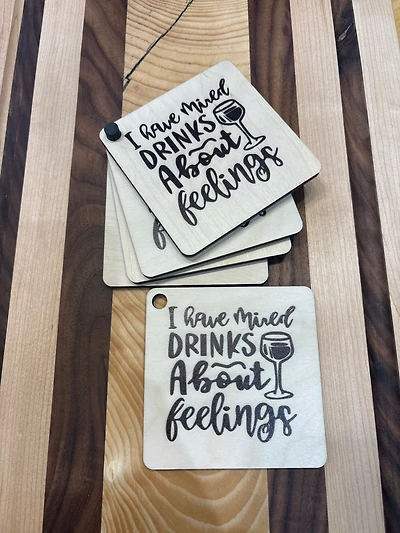 I have mixed
DRINKS
About
feelings
I have mixed
DRINKS
About
feelings